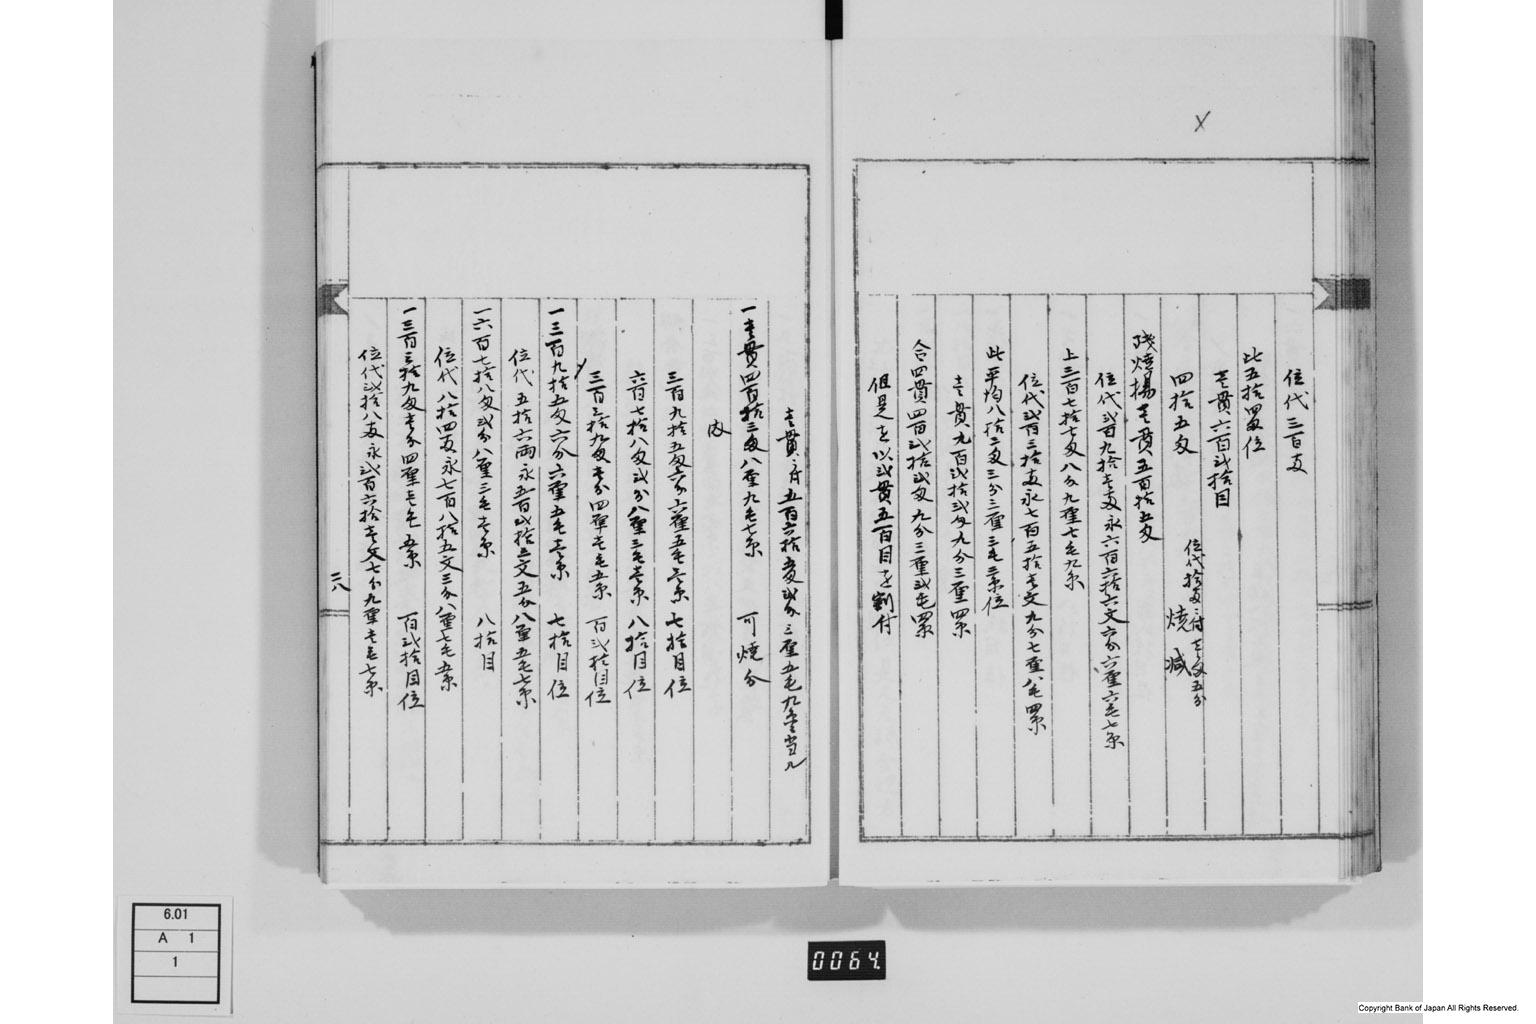 位代三百両
此五拾四匁位
壱貫六百弐拾目
四拾五匁
位代拾両ニ付壱匁五分
焼減
残焼揚壱貫五百拾五匁
位代弐百九拾壱両永六百六拾六文六分六厘六毛七糸
上三百七拾七匁八分九厘七毛九糸
位代弐百三拾両永七百五拾壱文九分七厘八毛四糸
此平均八拾二匁三分三厘三毛三糸位
壱貫九百弐拾弐匁九分三厘四糸
合四貫四百弐拾弐匁九分三厘弐毛四糸
但是を以弐貫五百目を割付
壱貫ニ付五百六拾五匁弐分三厘五毛九糸当ル
一壱貫四百拾三匁八厘九毛七糸 可焼分
内
三百九拾五匁六分六厘五毛壱糸 七拾目位
六百七拾八匁弐分八厘三毛壱糸 八拾目位
三百三拾九匁壱分四厘壱毛五糸 百弐拾目位
一三百九拾五匁六分六厘五毛壱糸 七拾目位
位代五拾六両永五百弐拾三文五分八厘五毛七糸
一六百七拾八匁弐分八厘三毛壱糸 八拾目
位代八拾四両永七百八拾五文三分八厘七毛五糸
一三百三拾九匁壱分四厘壱毛五糸 百弐拾目位
位代弐拾八両永弐百六拾壱文七分九厘壱毛七糸
二八
6.01
A 1
1
0064
Copyright Bank of Japan All Rights Reserved.